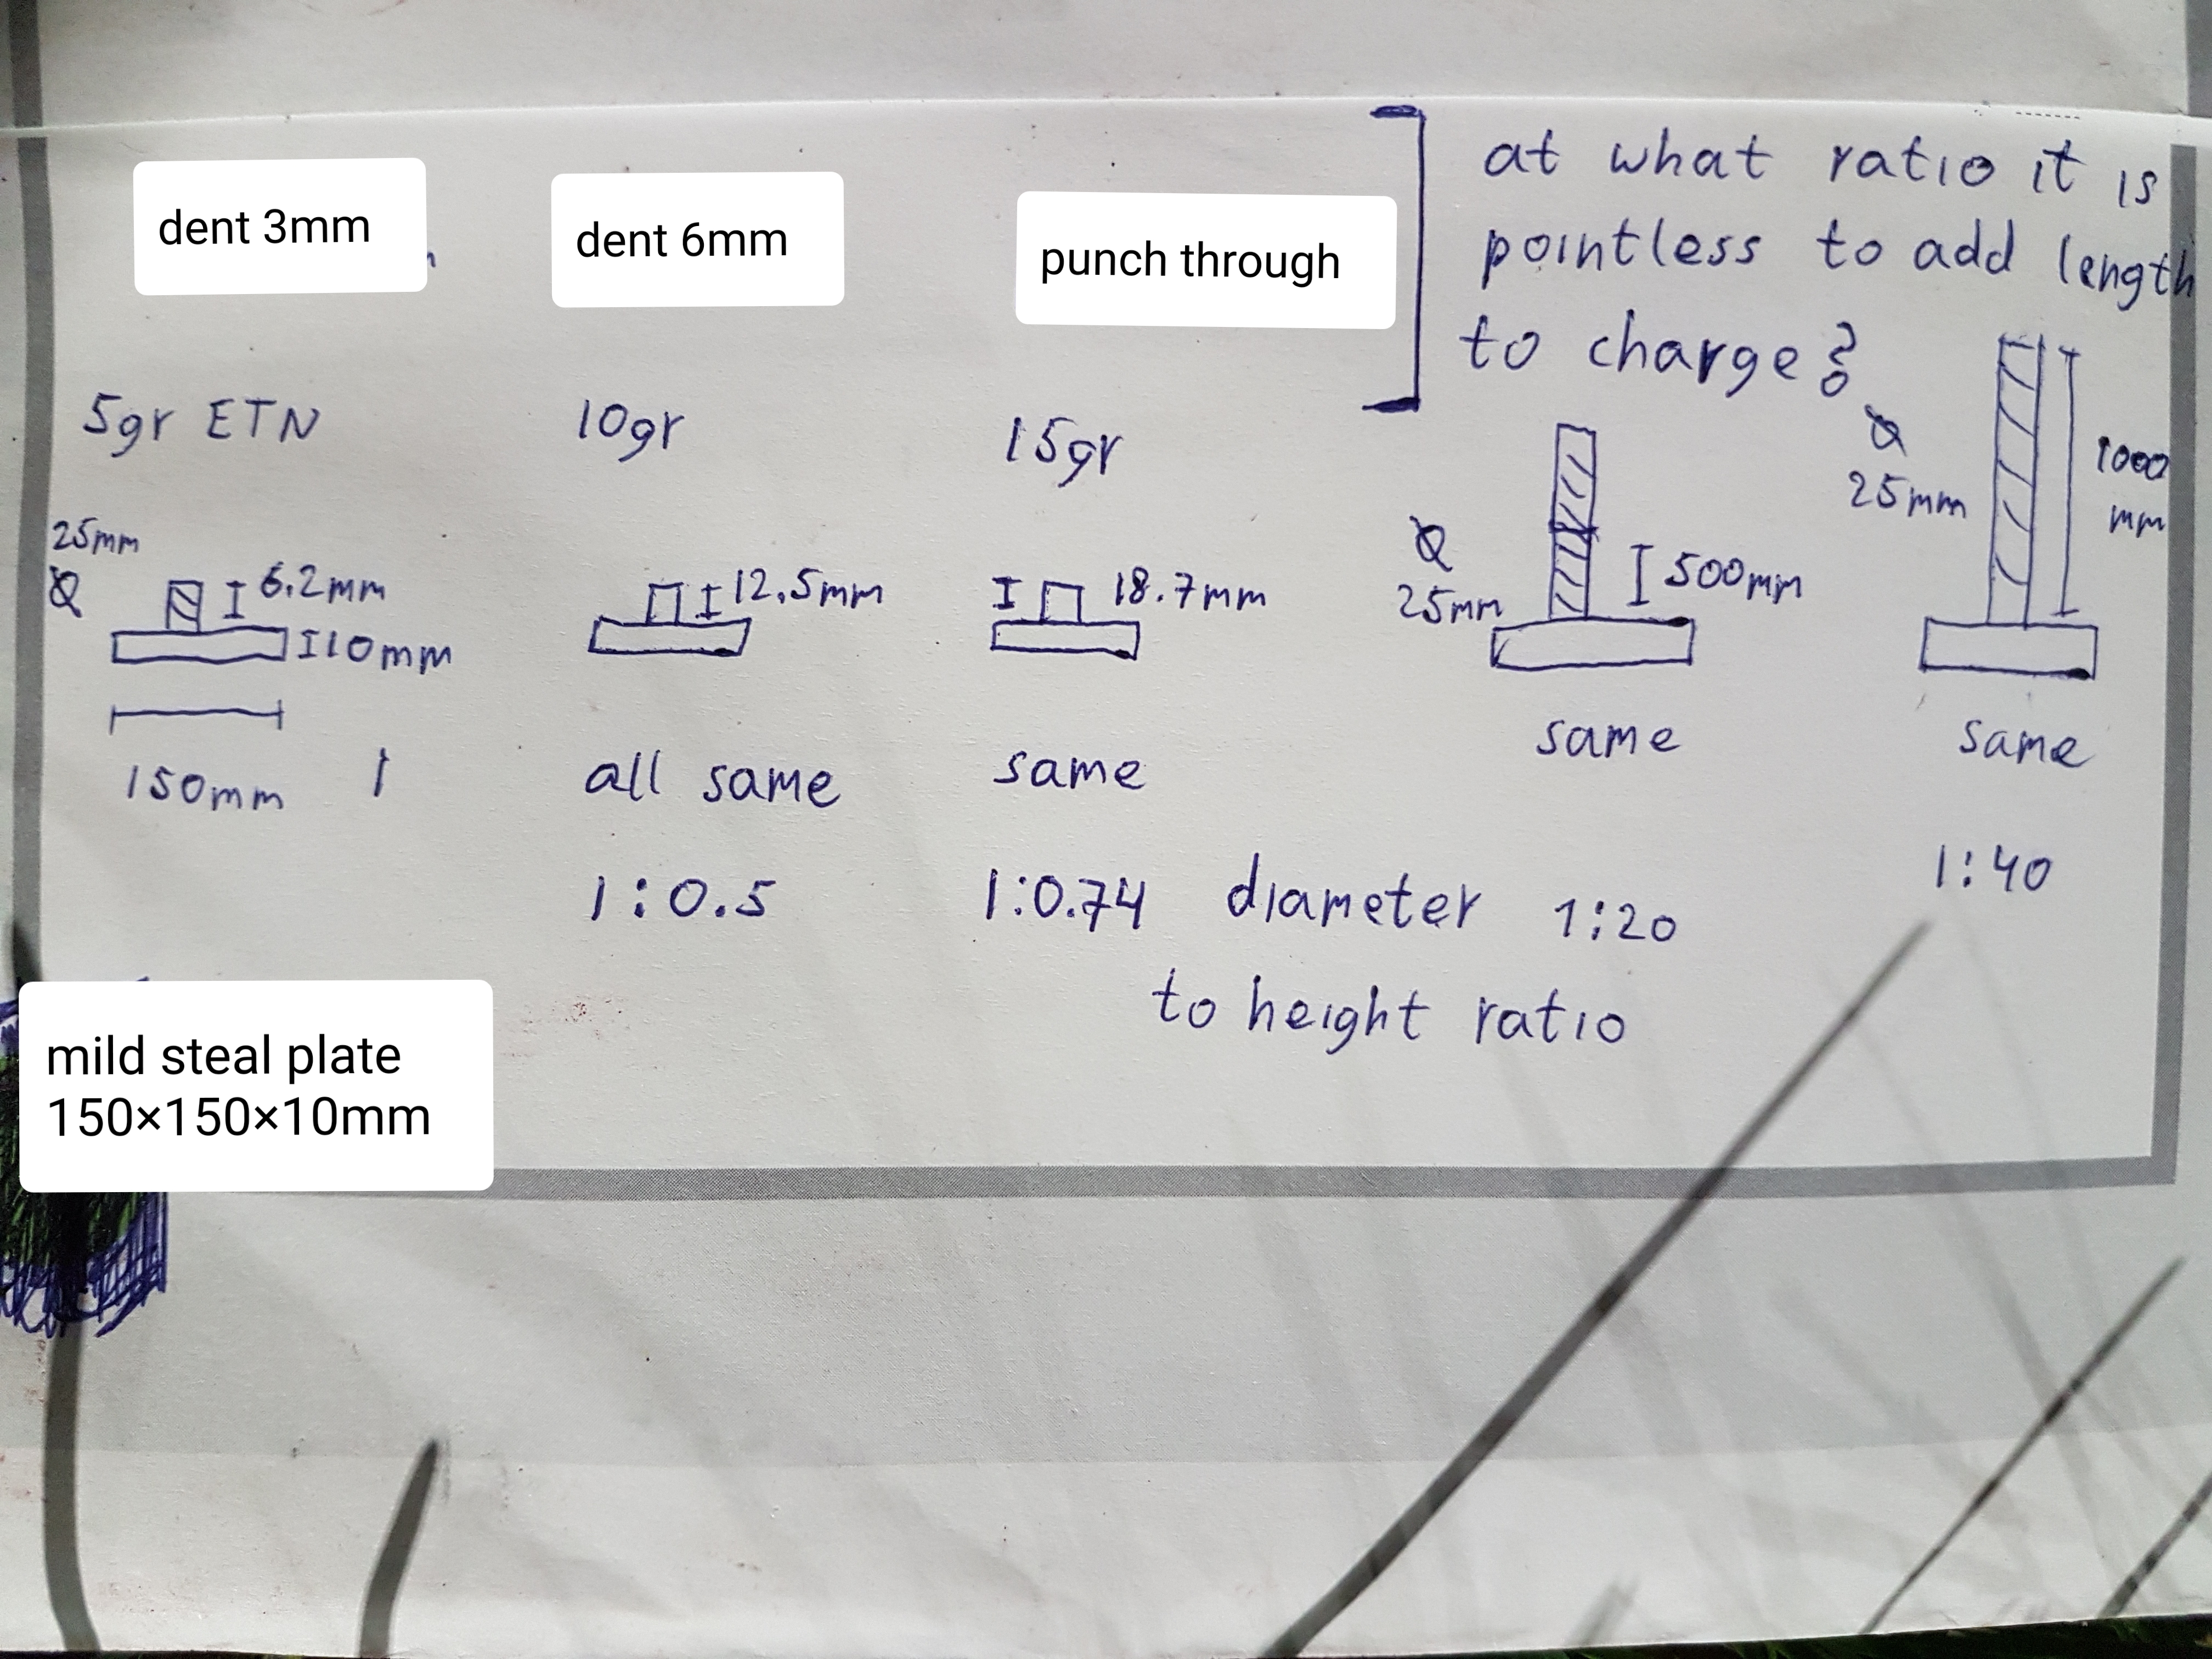 dent 3mm
dent 6mm
punch through
at what ratio it is
pointless to add length
to charge?
5gr ETN
10gr
15gr
25mm
6.2mm
10mm
150mm
12.5mm
18.7mm
25mm
500mm
25mm
1000
mm
all same
same
same
same
1:0.5
1:0.74
diameter
to height ratio
1:20
1:40
mild steal plate
150×150×10mm